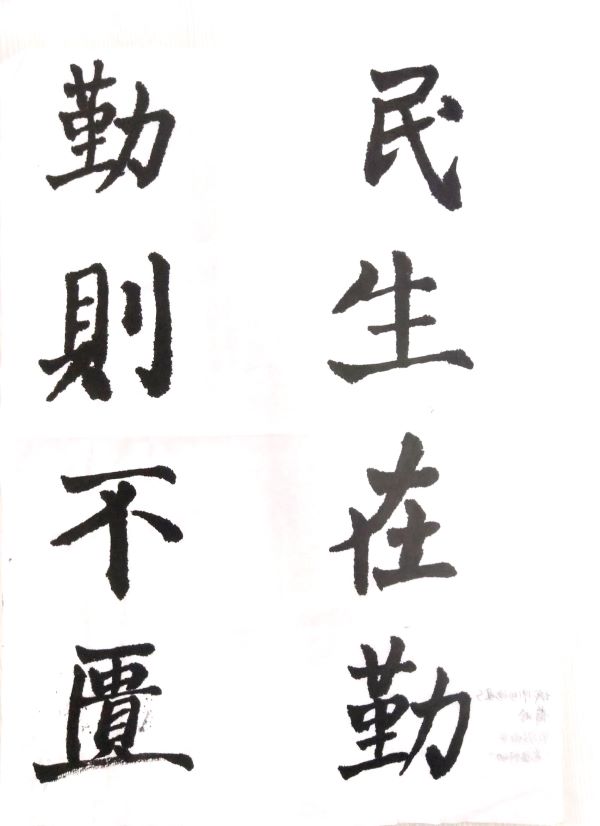 民生在勤
勤則不匱